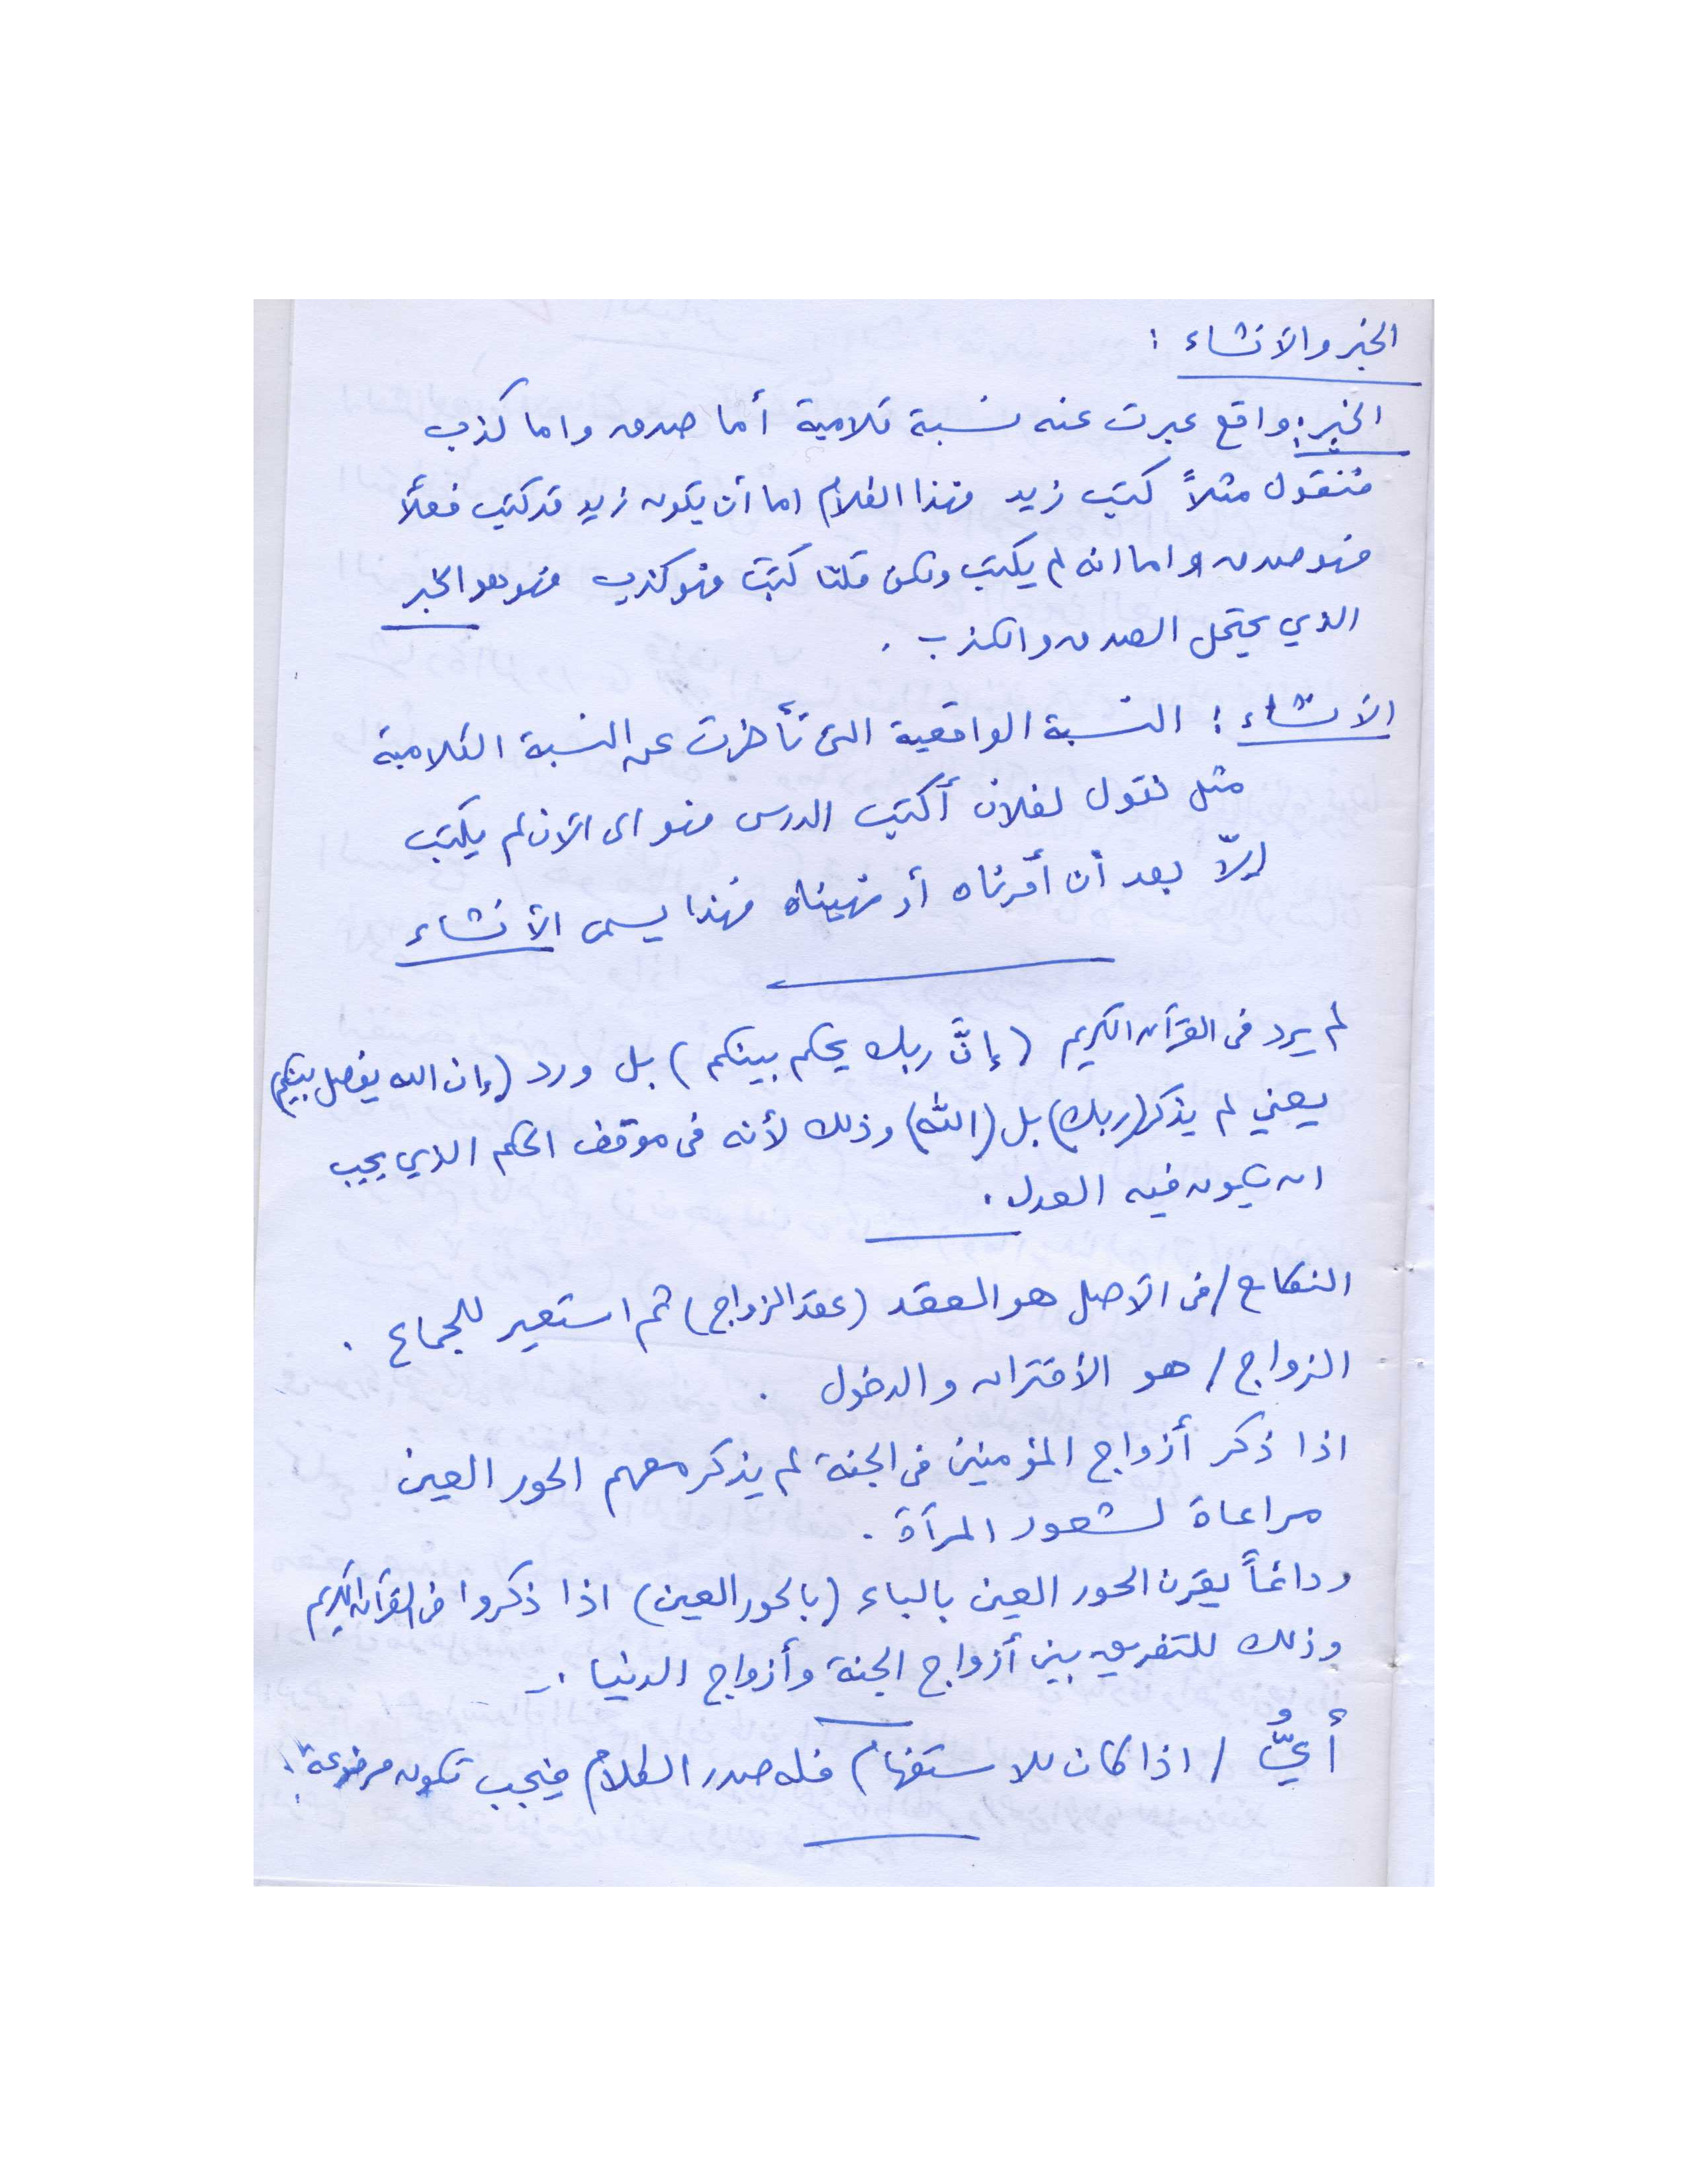 الخبر والانشاء :
الخبر : واقع عبرت عنه نسبة كلامية أما صدق واما كذب
فنقول مثلاً كتب زيد فهذا الكلام اما أن يكون زيد قد كتب فعلاً
فهو صدق واما انه لم يكتب ولكن قلنا كتب فهو كذب فهو هو الخبر
الذي يحتمل الصدق والكذب .
الانشاء : النسبة الواقعية التي تأخرت عن النسبة الكلامية
مثل نقول لفلان أكتب الدرس فهو الى الآن لم يكتب
إلاّ بعد أن أمرناه أو نهيناه فهذا يسمى الأنشاء
لم يرد في القرآن الكريم (إنَّ ربك يحكم بينكم) بل ورد (إن الله يفصل بينكم)
يعني لم يذكر (ربك) بل (الله) وذلك لأنه في موقف الحكم الذي يجب
ان يكون فيه العدل .
النكاح / في الاصل هو العقد (عقد الزواج) ثم استعير للجماع .
الزواج / هو الأقتران والدخول .
اذا ذكر أزواج المؤمنين في الجنة لم يذكر معهم الحور العين
مراعاة لشعور المرآة .
ودائماً يقرن الحور العين بالباء (بالحور العين) اذا ذكروا في القرآن الكريم
وذلك للتفريق بين أزواج الجنة وأزواج الدنيا .
أيُّ / اذا كان للاستفهام فله صدر الكلام فيجب تكون مرفوعة .